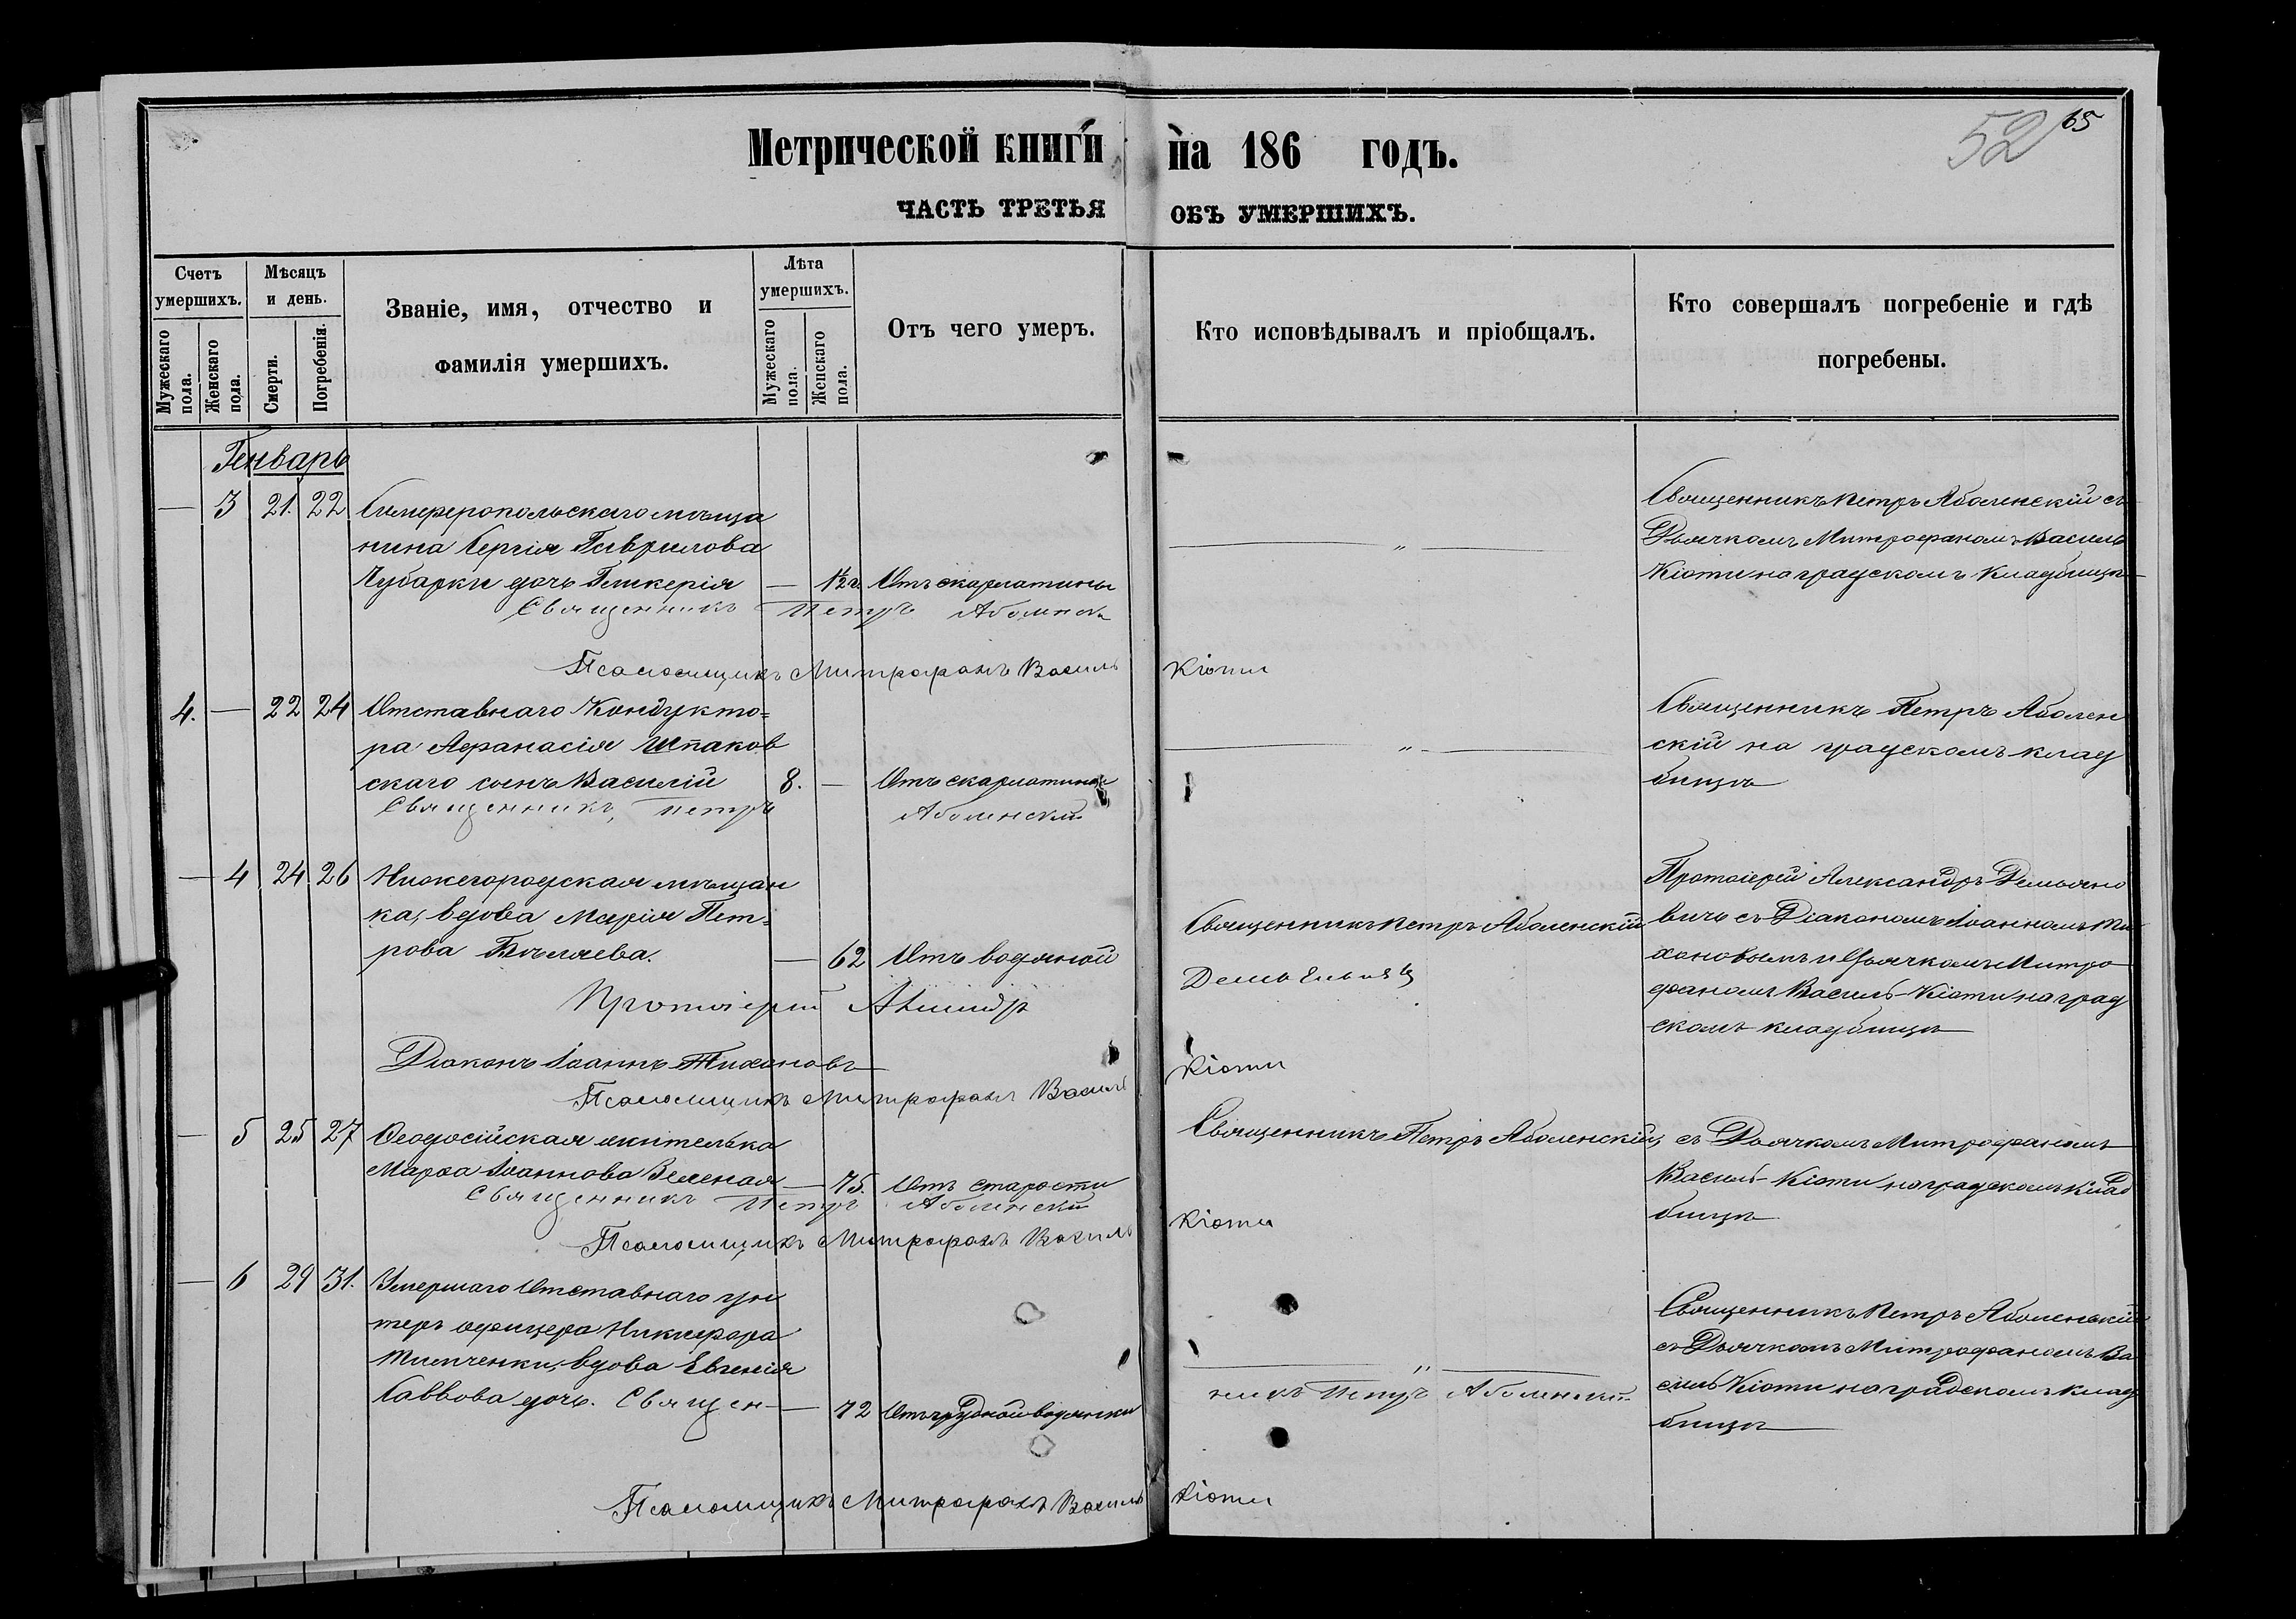 Метрической книги на 186 годъ.
52 65
ЧАСТЬ ТРЕТЬЯ ОБЪ УМЕРШИХЪ.
Счетъ умершихъ.
Мужескаго пола.
Женскаго пола.
Мѣсяцъ и день.
Смерти.
Погребенія.
Званіе, имя, отчество и
фамилія умершихъ.
Лѣта умершихъ.
Мужескаго пола.
Женскаго пола.
Отъ чего умеръ.
Кто исповѣдывалъ и пріобщалъ.
Кто совершалъ погребеніе и гдѣ
погребены.
Генварь
— 3 21. 22 Симферопольскаго мѣща
нина Сергія Гаврилова
Чубарки дочь Гликерія — 1/2 г. Отъ скарлатины
— „ —
Священникъ Петръ Аболенскій съ
Дьячкомъ Митрофаномъ Василь
Кіоти на градскомъ кладбищѣ
Священникъ Петръ Аболенскі
Псаломщикъ Митрофанъ Василь Кіоти
4. — 22 24 Отставнаго Кондукто=
ра Афанасія Шпаков
скаго сынъ Василій 8. — Отъ скарлатины
— „ —
Священникъ Петръ Аболен
скій на градскомъ клад
бищѣ
Священникъ, Петръ Аболенскій
— 4 24 26 Нижегородская мѣщан
ка, вдова Марія Пет=
рова Бѣляева. — 62 Отъ водяной
Священникъ Петръ Аболенскій
Протоіерей Александръ Демьяно
вичъ съ Діакономъ Іоанномъ Ти
хановымъ и Дьячкомъ Митро
фаномъ Василь-Кіоти на град
скомъ кладбищѣ
Протоіерей
Діаконъ Іоаннъ Тихановъ
Псаломщикъ Митрофанъ Василь Кіоти
— 5 25 27 Ѳеодосійская жителька
Марѳа Іоаннова Зеленая — 75. Отъ старости
Священникъ Петръ Аболенскій, съ Дьячкомъ Митрофаномъ
Василь-Кіоти на градскомъ клад
бищѣ
Священникъ Петръ Аболенскій
Псаломщикъ Митрофанъ Василь Кіоти
— 6 29 31. Умершаго Отставнаго ун
теръ офицера Никифора
вдова Евгенія
Саввова дочь. — 72 Отъ грудной водянки
— „ —
Священникъ Петръ Аболенскій
съ Дьячкомъ Митрофаномъ Ва
силь Кіоти на градскомъ клад
бищѣ
Священникъ Петръ Аболенскій
Псаломщикъ Митрофанъ Василь Кіоти